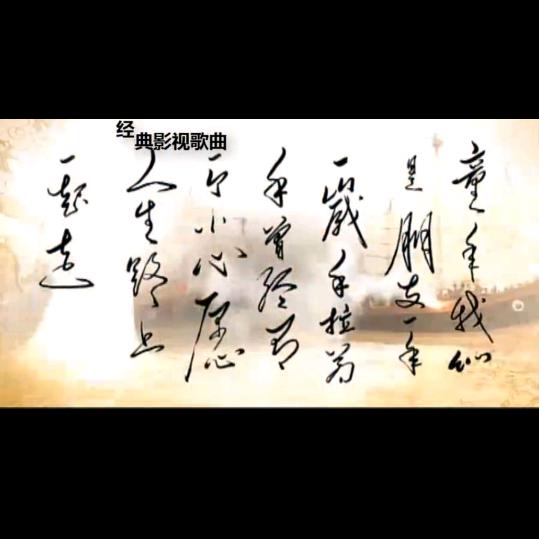 经典影视歌曲
童年我们
是朋友一年
一岁手拉着
手曾经有
一个小心愿
人生路上
一起走